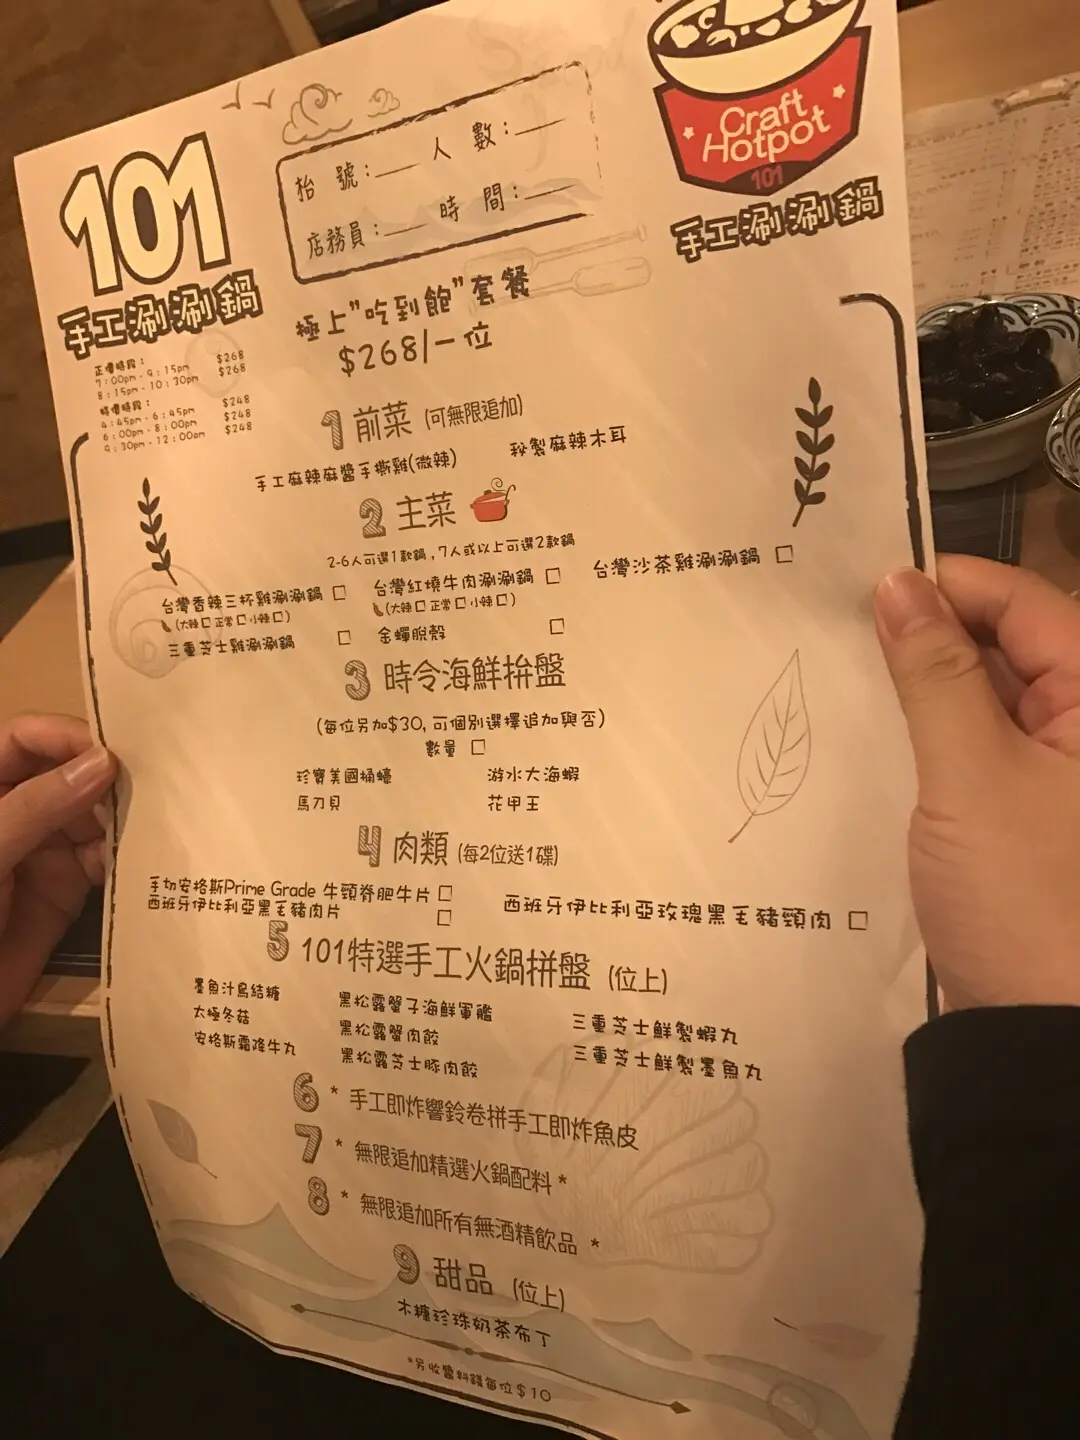 101
手工涮涮鍋
枱 號：
人 數：
店務員：
時 間：
Craft
Hotpot
101
手工涮涮鍋
極上"吃到飽"套餐
$268/一位
正價時段：
7:00pm - 9:15pm $268
8:15pm - 10:30pm $268
特價時段：
4:45pm - 6:45pm $248
6:00pm - 8:00pm $248
9:30pm - 12:00am $248
1 前菜 (可無限追加)
手工麻辣麻醬手撕雞(微辣) 秘製麻辣木耳
2 主菜
2-6人可選1款鍋，7人或以上可選2款鍋
台灣香辣三杯雞涮涮鍋 □ 台灣紅燒牛肉涮涮鍋 □ 台灣沙茶雞涮涮鍋 □
(大辣□ 正常□ 小辣□) (大辣□ 正常□ 小辣□)
三重芝士雞涮涮鍋 □ 金蟬脫殼 □
3 時令海鮮拚盤
(每位另加$30, 可個別選擇追加與否)
數量 □
珍寶美國桶蠔 游水大海蝦
馬刀貝 花甲王
4 肉類 (每2位送1碟)
手切安格斯Prime Grade 牛頸脊肥牛片 □
西班牙伊比利亞黑毛豬肉片 □ 西班牙伊比利亞玫瑰黑毛豬頸肉 □
5 101特選手工火鍋拼盤 (位上)
墨魚汁鳥結糖 黑松露蟹子海鮮軍艦 三重芝士鮮製蝦丸
太極冬菇 黑松露蟹肉餃 三重芝士鮮製墨魚丸
安格斯霜降牛丸 黑松露芝士豚肉餃
6 * 手工即炸響鈴卷拼手工即炸魚皮
7 * 無限追加精選火鍋配料 *
8 * 無限追加所有無酒精飲品 *
9 甜品 (位上)
木糖珍珠奶茶布丁
*另收醬料錢每位$10